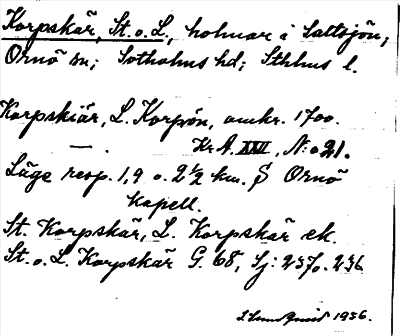 Korpskär, St. o. L., holmar i Saltsjön;
Ornö sn; Sotholms hd; Sthlms l.
Korpskiär, L. Korpön, omkr. 1700.
— . Kr. A. XXII, N:o 21.
Läge resp. 1,9 o. 2 1/2 km. S Ornö
kapell.
St. Korpskär, L. Korpskär ek.
St. o. L. Korpskär G. 68, Sj: 237o. 236
1936.